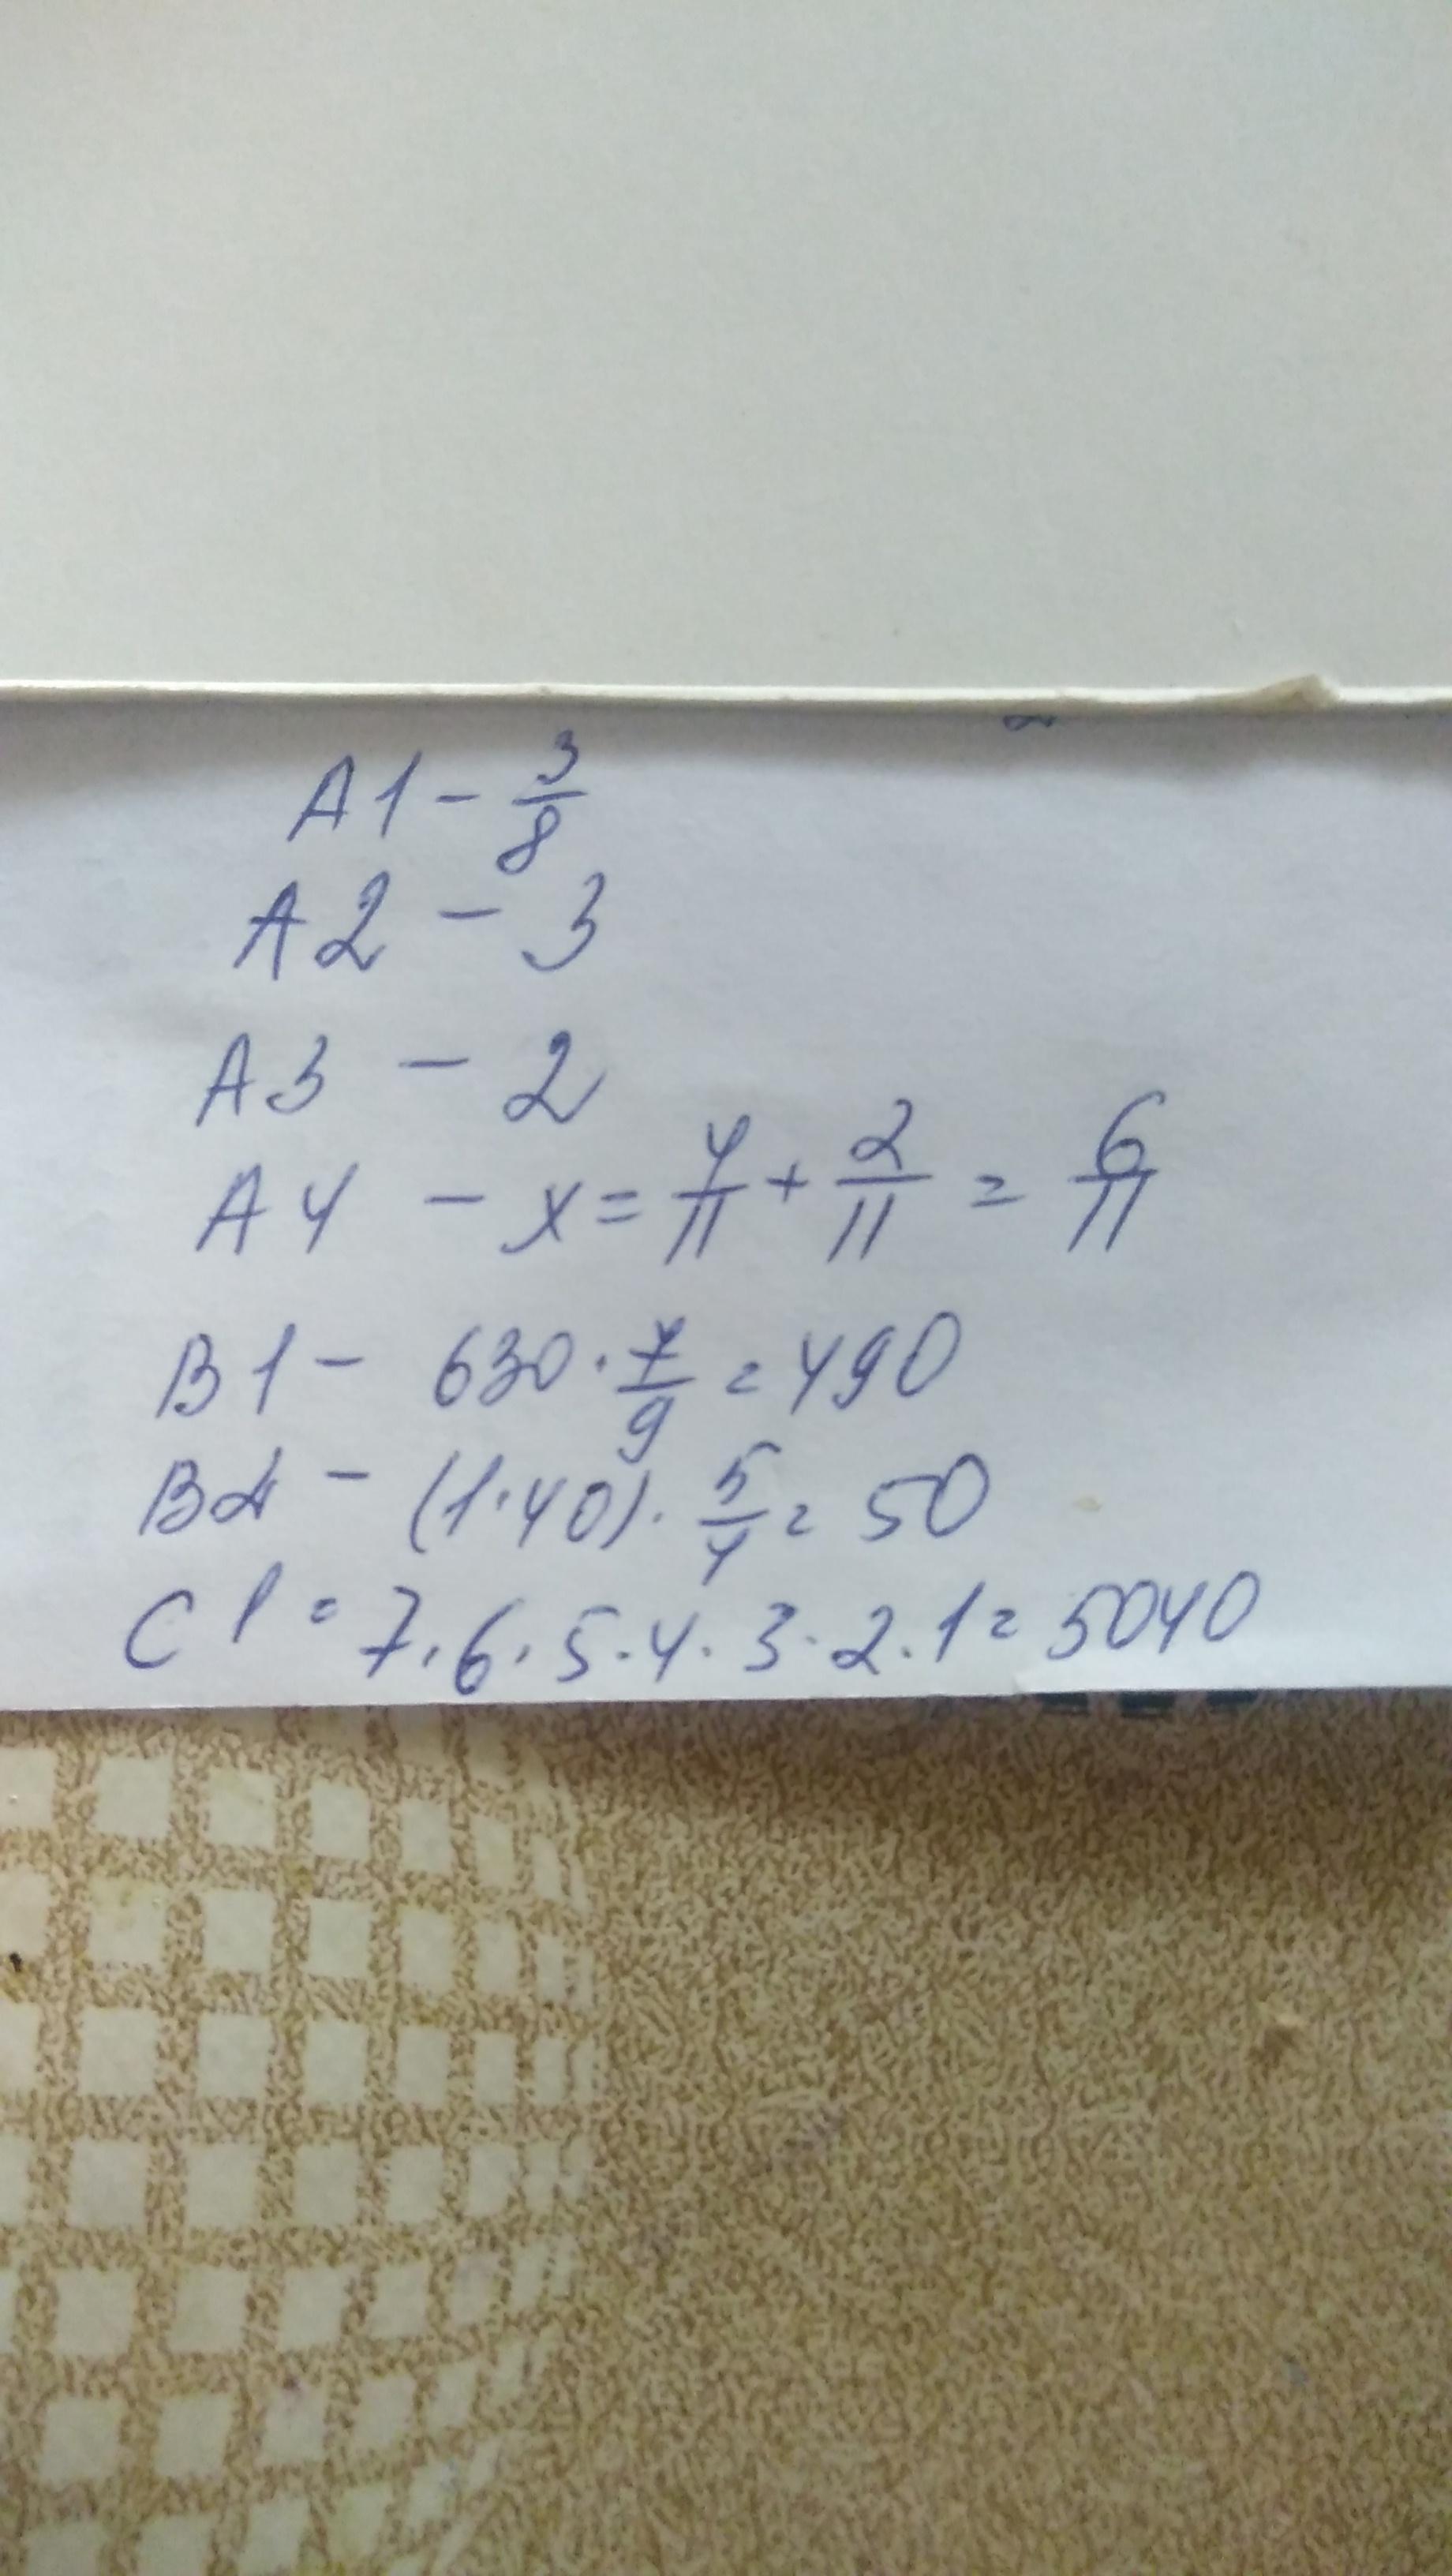 A1 - 3/8
A2 - 3
A3 - 2
A4 - x = 4/11 + 2/11 = 6/11
B1 - 630 · 7/9 = 490
B2 - (1·40) · 5/4 = 50
C1 = 7·6·5·4·3·2·1 = 5040